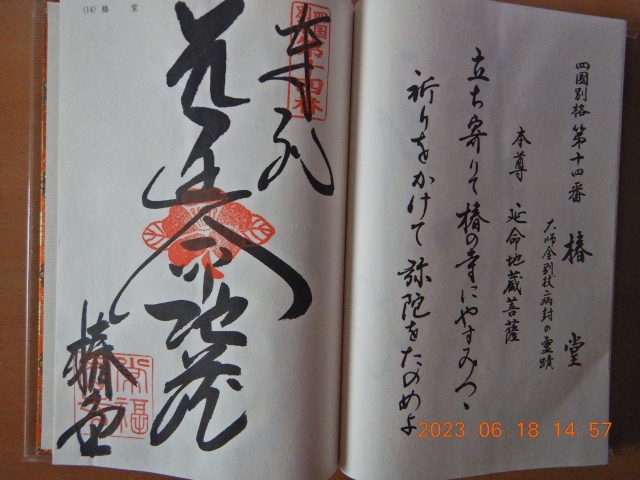 四國別格 第十四番 椿堂
大師金剛杖病封の霊蹟
本尊 延命地蔵菩薩
立ち寄りて椿の寺にやすみつゝ
祈りをかけて弥陀をたのめよ
(14) 椿 堂
奉
延命地蔵
椿堂
2023.06.18 14:57